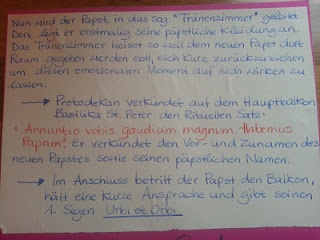 Nun wird der Papst in das sog. "Tränenzimmer" geleitet.
Dort legt er erstmalig seine päpstliche Kleidung an.
Das Tränenzimmer heisst so weil dem neuen Papst dort
Raum gegeben werden soll, sich kurz zurückzuziehen
um diesen emotionalen Moment auf sich wirken zu
lassen.
→ Protodekan verkündet auf dem Hauptbalkon
Basilika St. Peter den Rituellen Satz:
"Annuntio vobis gaudium magnum. Habemus
Papam" Er verkündet den Vor- und Zunamen des
neuen Papstes sowie seinen päpstlichen Namen.
→ Im Anschluss betritt der Papst den Balkon,
hält eine kurze Ansprache und gibt seinen
1. Segen Urbi et Orbi